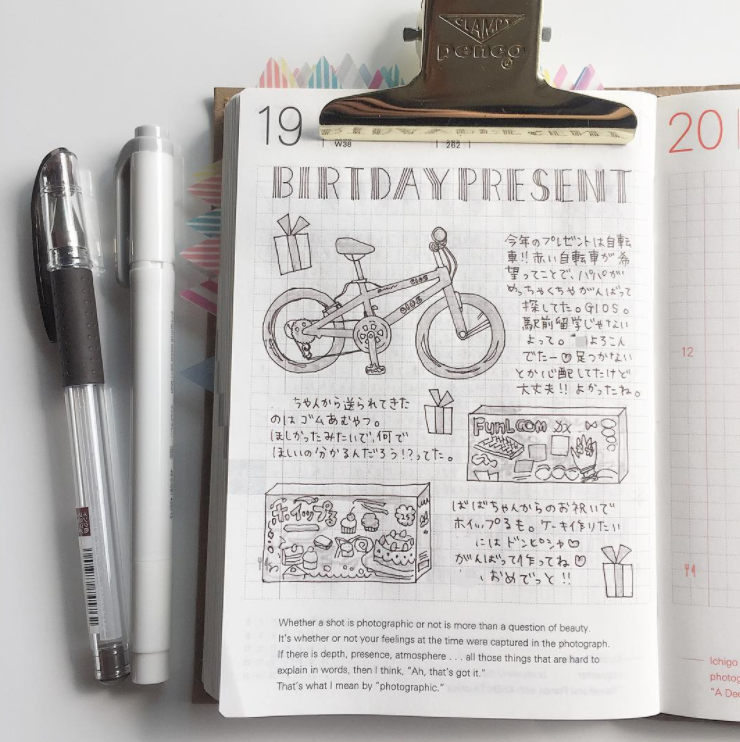 CLAMPY
penco
19
W38
262
20
BIRTDAY PRESENT
今年のプレゼントは自転
車!!赤い自転車が希
望ってことで、パパが
めっちゃくちゃがんばって
探してた。GIOS。
駅前留学じゃない
よって。 よろこん
でたー♡足つかない
とか心配してたけど
大丈夫!!よかったね。
GIOS
GIOS
12
ちゃんから送られてきた
のはゴムあむやつ。
ほしかったみたいで、何で
ほしいの分かるんだろう!?ってた。
FUNLOOM DX
ホイップる
ばばちゃんからのお祝いで
ホイップるも。ケーキ作りたい
にはドンピシャ♡
がんばって作ってね♡
おめでっと!!
Whether a shot is photographic or not is more than a question of beauty.
It's whether or not your feelings at the time were captured in the photograph.
If there is depth, presence, atmosphere . . . all those things that are hard to
explain in words, then I think, "Ah, that's got it."
That's what I mean by "photographic."
Ichigo
photog
"A Dee